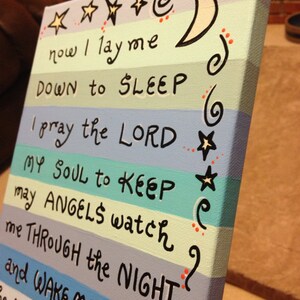 now I lay me
DOWN to SLEEP
I pray the LORD
MY SOUL to KEEP
may ANGELS watch
me THROUGH the NIGHT
and WAKE